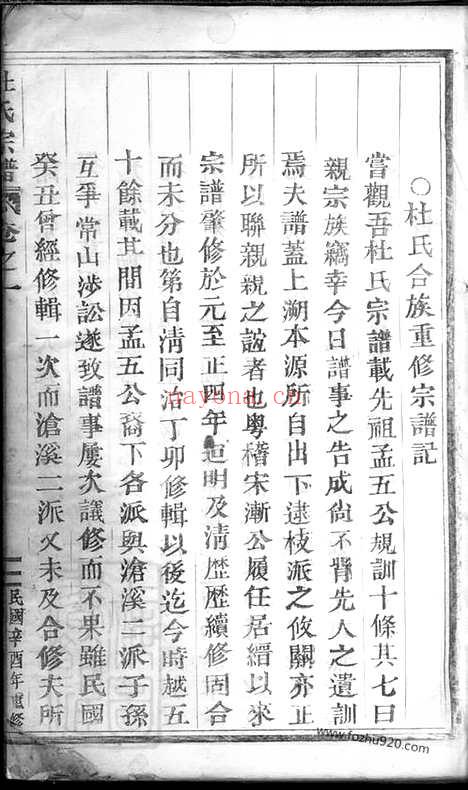 ○杜氏合族重修宗譜記
嘗觀吾杜氏宗譜載先祖孟五公規訓十條其七曰
親宗族竊幸今日譜事之告成尙不背先人之遺訓
焉夫譜蓋上溯本源所自出下逮枝派之攸關亦正
所以聯親親之誼者也粵稽宋漸公履任居縉以來
宗譜肇修於元至正四年迨明及淸歷歷續修固合
而未分也第自淸同治丁卯修輯以後迄今時越五
十餘載其間因孟五公裔下各派與滄溪二派子孫
互爭常山涉訟遂致譜事屢次議修而不果雖民國
癸丑曾經修輯一次而滄溪二派又未及合修夫所
杜氏宗譜 卷之一
民國辛酉年重修
nayona.cn
www.fozhu920.com